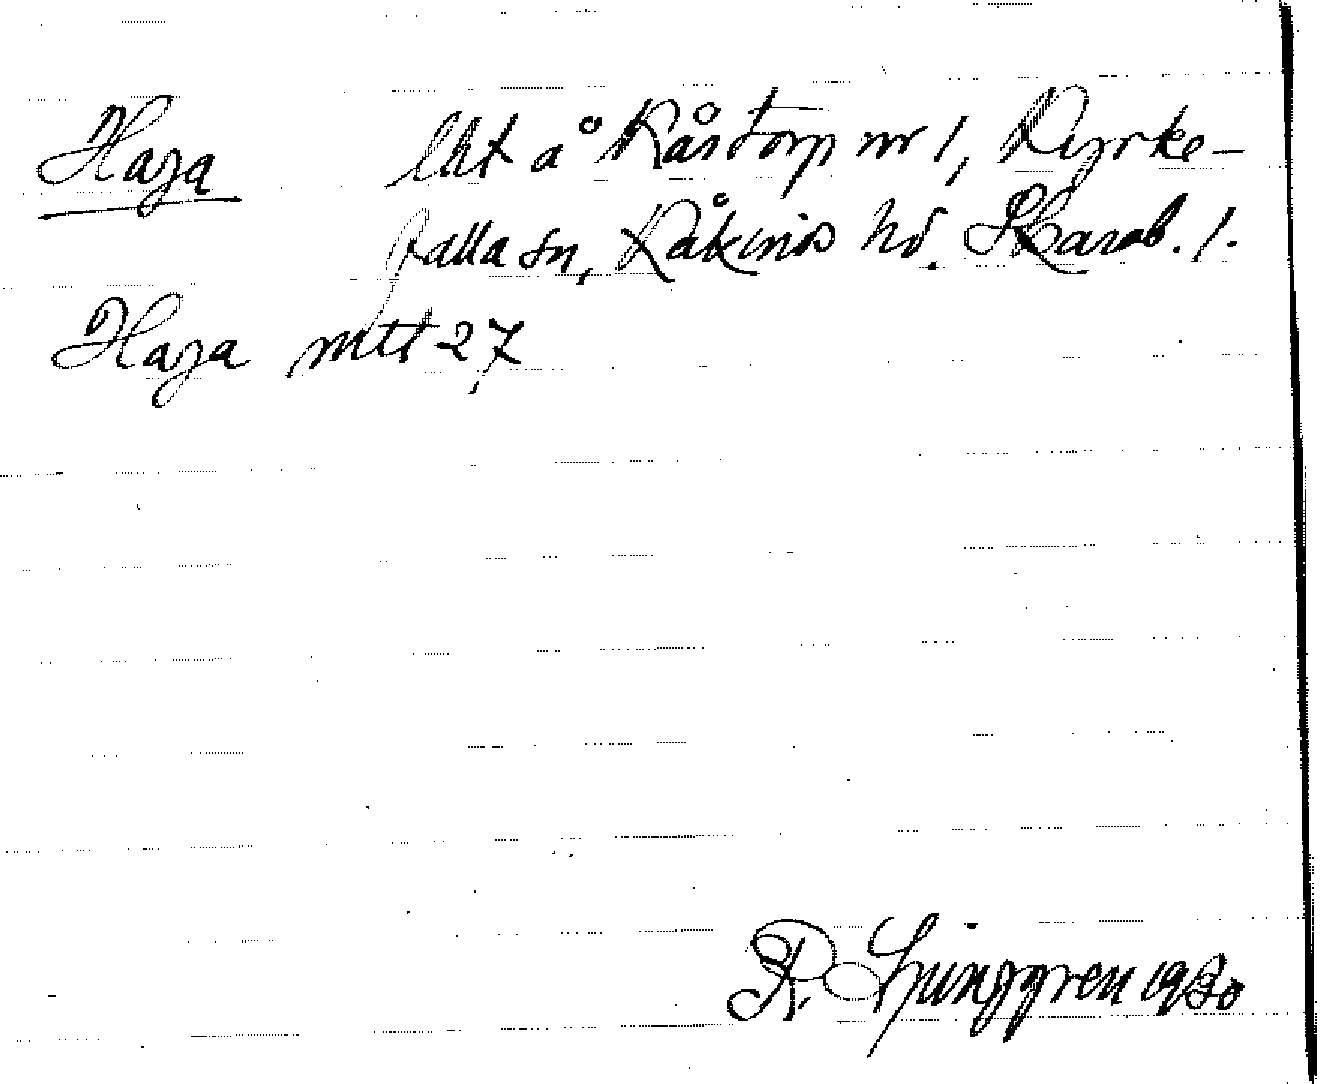 Haga lht å Råstorp nr 1, Kyrke-
falla sn, Kåkinds hd. Skarab. l.
Haga mtt 27
R. Ljunggren 1930